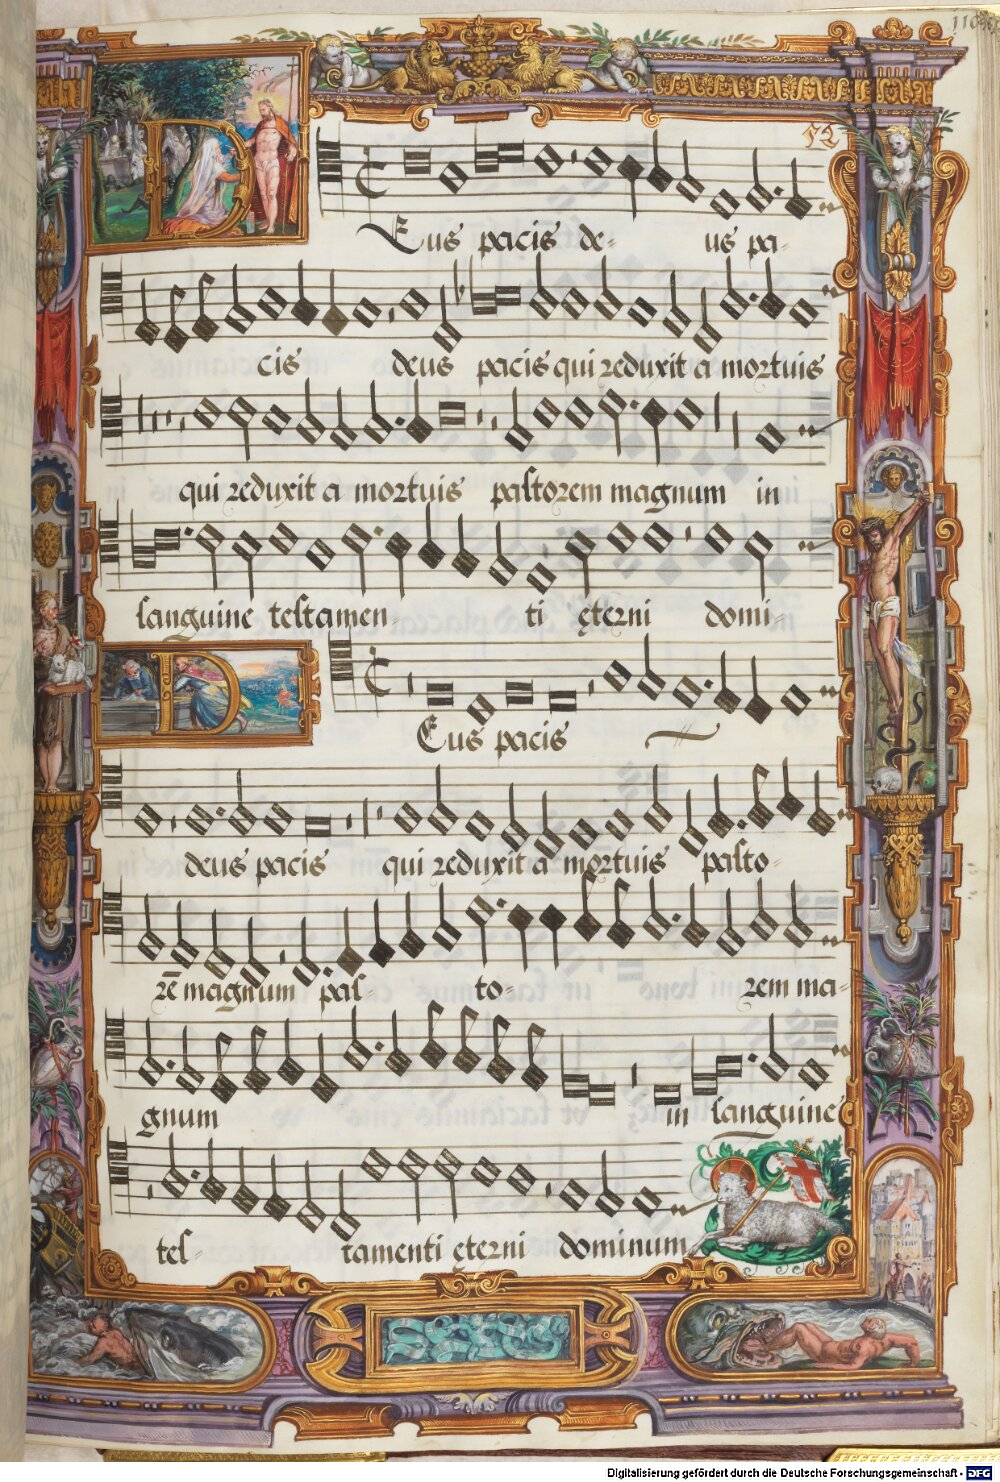 116
52
DEus pacis de- us pa-
cis deus pacis qui reduxit a mortuis
qui reduxit a mortuis pastorem magnum in
sanguine testamen- ti ęterni domi-
DEus pacis
deus pacis qui reduxit a mortuis pasto-
rē magnum pas- to- rem ma-
gnum in sanguine
tes- tamenti ęterni dominum
Digitalisierung gefördert durch die Deutsche Forschungsgemeinschaft - DFG